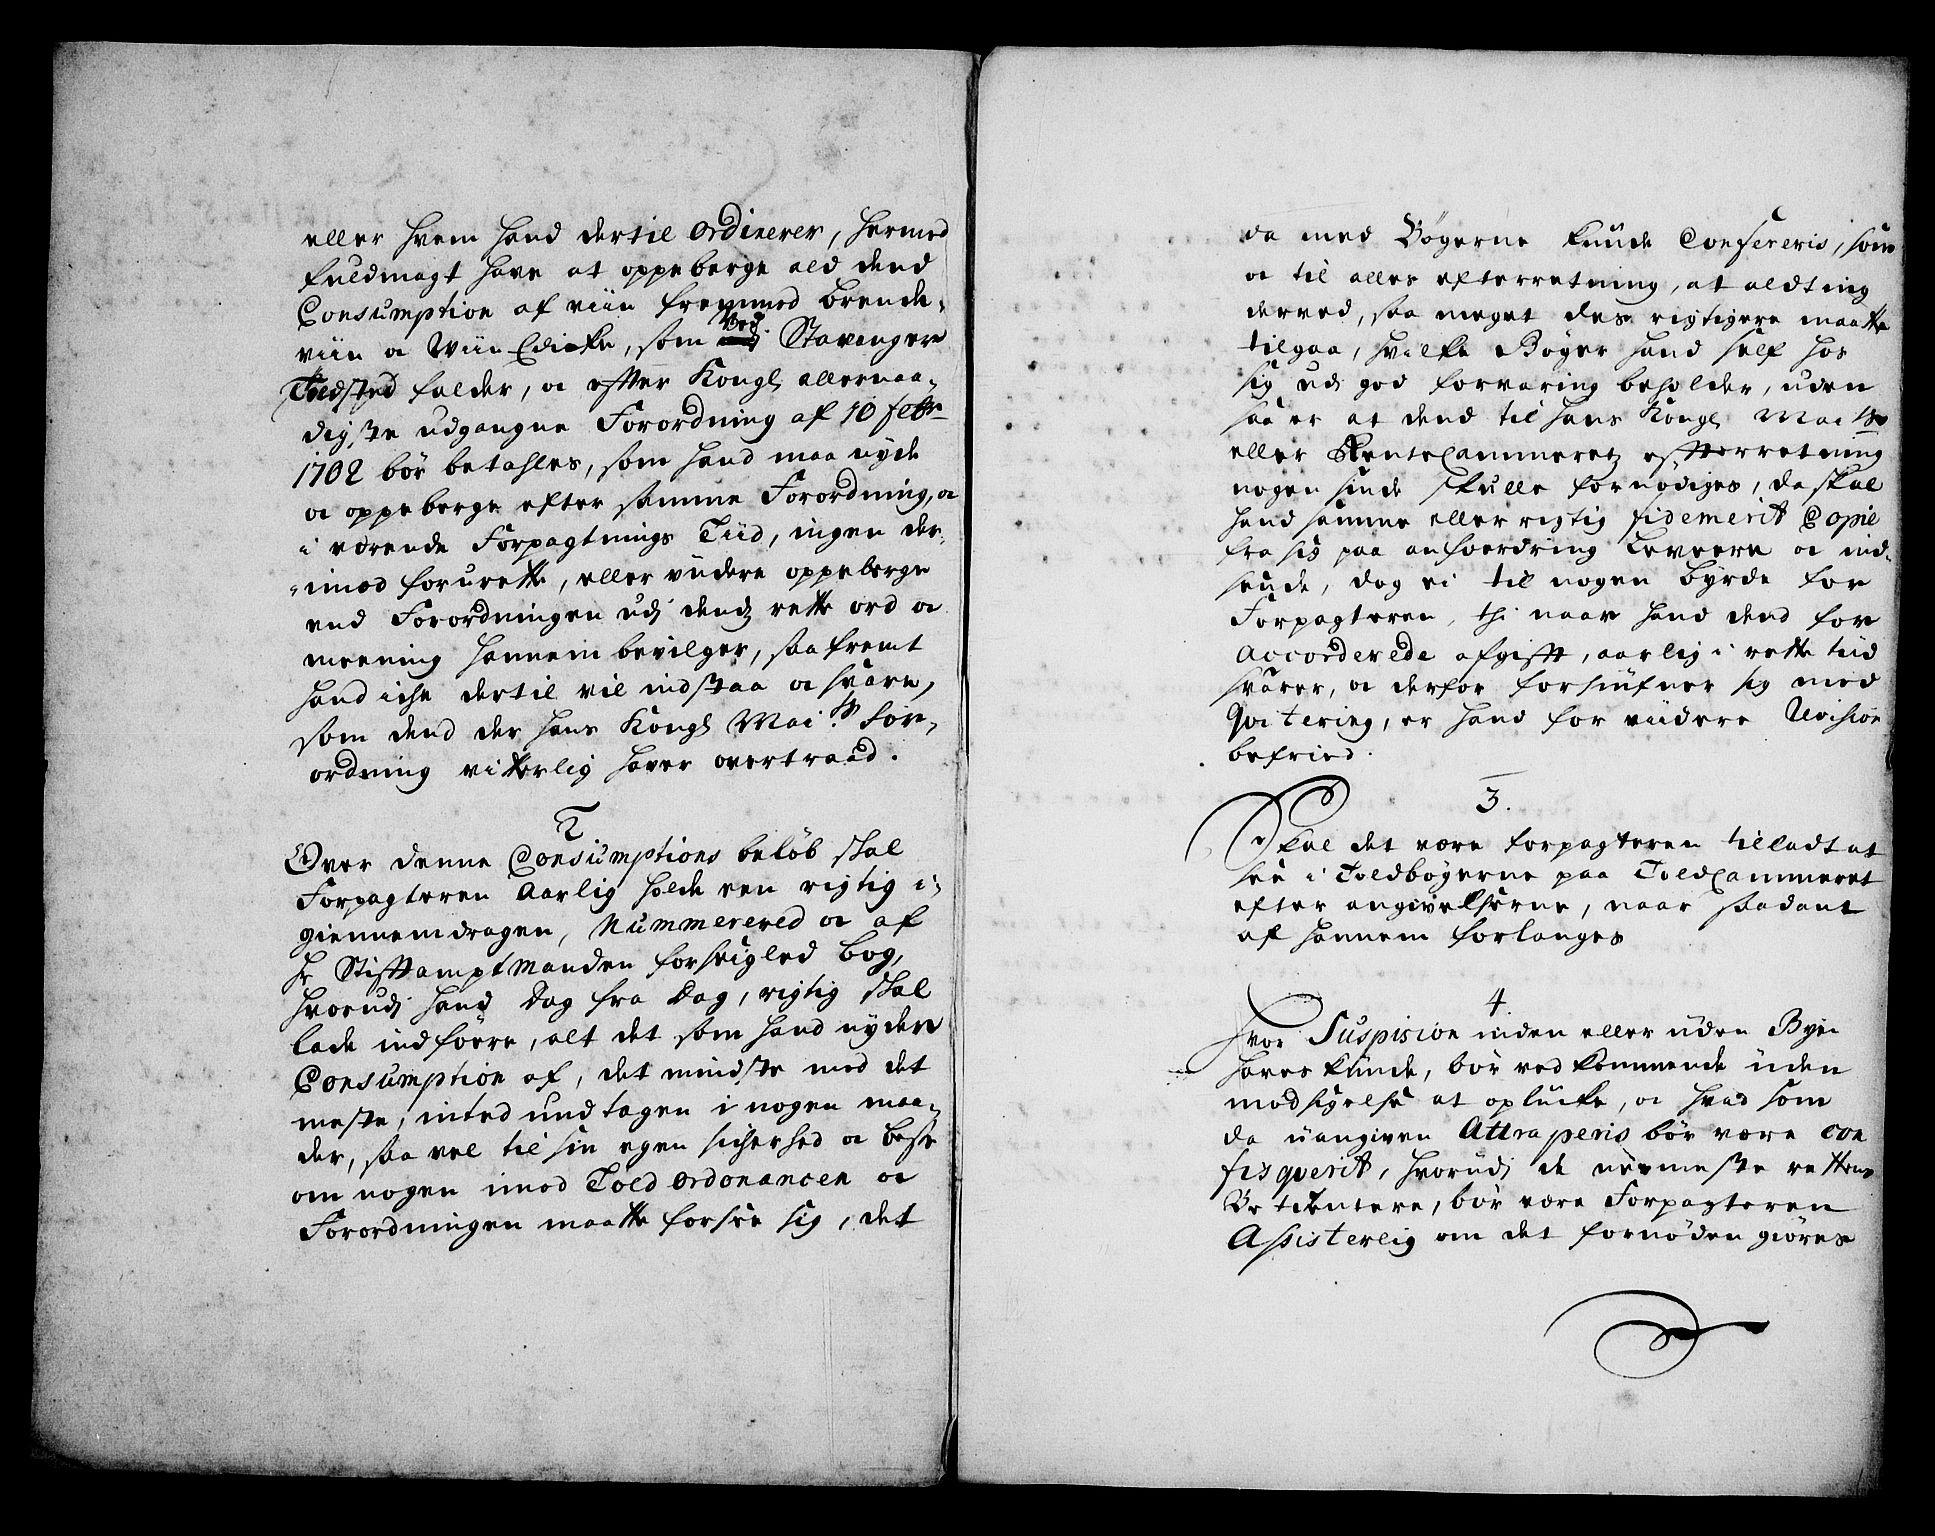 eller hvem hand dertil ordinerer, hermed
fuldmagt have at oppeberge ald dend
Consumption af viin fremmed brende-
viin oc Wiin Edicke, som Ved Stavanger
Toldsted falder, oc efter Kongl allernaa-
digste udgangne Forordning af 10 febr
1702 bör betahles, som hand maa nyde
oc oppeberge efter samme Forordning, oc
i værende Forpagtnings Tiid, ingen der-
imod forurette, eller viidere oppeberge
end Forordningen udj dend rette ord oc
meening hannem bevilger, saa fremt
hand icke dertil vil indstaa oc svare,
som dend der hans Kongl Mai.ts for-
ordning vitterlig haver overtraad.
2
Over denne Consumptions beløb skal
Forpagteren Aarlig holde een rigtig i-
giennemdragen, Nummerered oc af
Hr Stiftamptmanden forseigled bog,
hvorudj hand dag fra dag, rigtig skal
lade indföere, alt det som hand nyder
Consumption af, det mindste med det
meste, inted undtagen i nogen maa-
der, saa vel til sin egen sicherhed oc besse
om nogen imod Told ordonancen oc
Forordningen maatte forsee sig, det
da med Bögerne kunde Confereris, som
oc til alles efterretning, at aldting
derved, saa meget des rigtigere maatte
tilgaa, hvilke Böger hand self hos
sig udj god forvaring beholder, uden
saa er at dend til hans Kongl Maits
eller RenteCammeretz efterretning
nogen sinde skulle fornødiges, da skal
hand samme eller rigtig fidemerit Copie
fra sig paa anfordring levere oc ind-
sende, dog ei til nogen byrde for
Forpagteren, thi naar hand dend for
Accorderede afgift, aarlig i rette tiid
svarer, oc derfor forsiufner sig med
Qvitering, er hand for viidere Revision
befried.
3.
Skal det være forpagteren tilladt at
see i Toldbögerne paa ToldCammeret
efter angivelserne, naar saadant
af hannem forlanges
4.
Hvor Suspision inden eller uden Byen
haves kunde, bör vedkommende uden
modsigelse at oplucke, oc hvad som
da uangiven Attraperis bör være con
fisqverit, hvorudj de nermeste rettens
Betientere, bör være Forpagteren
Assisterlig om det fornöden giöres